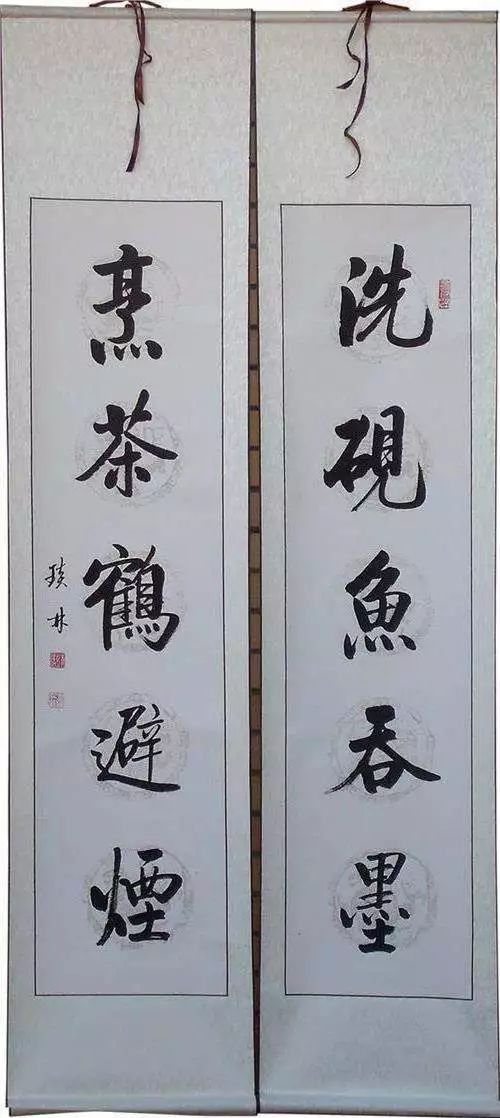 洗硯魚吞墨
烹茶鶴避煙
琰林